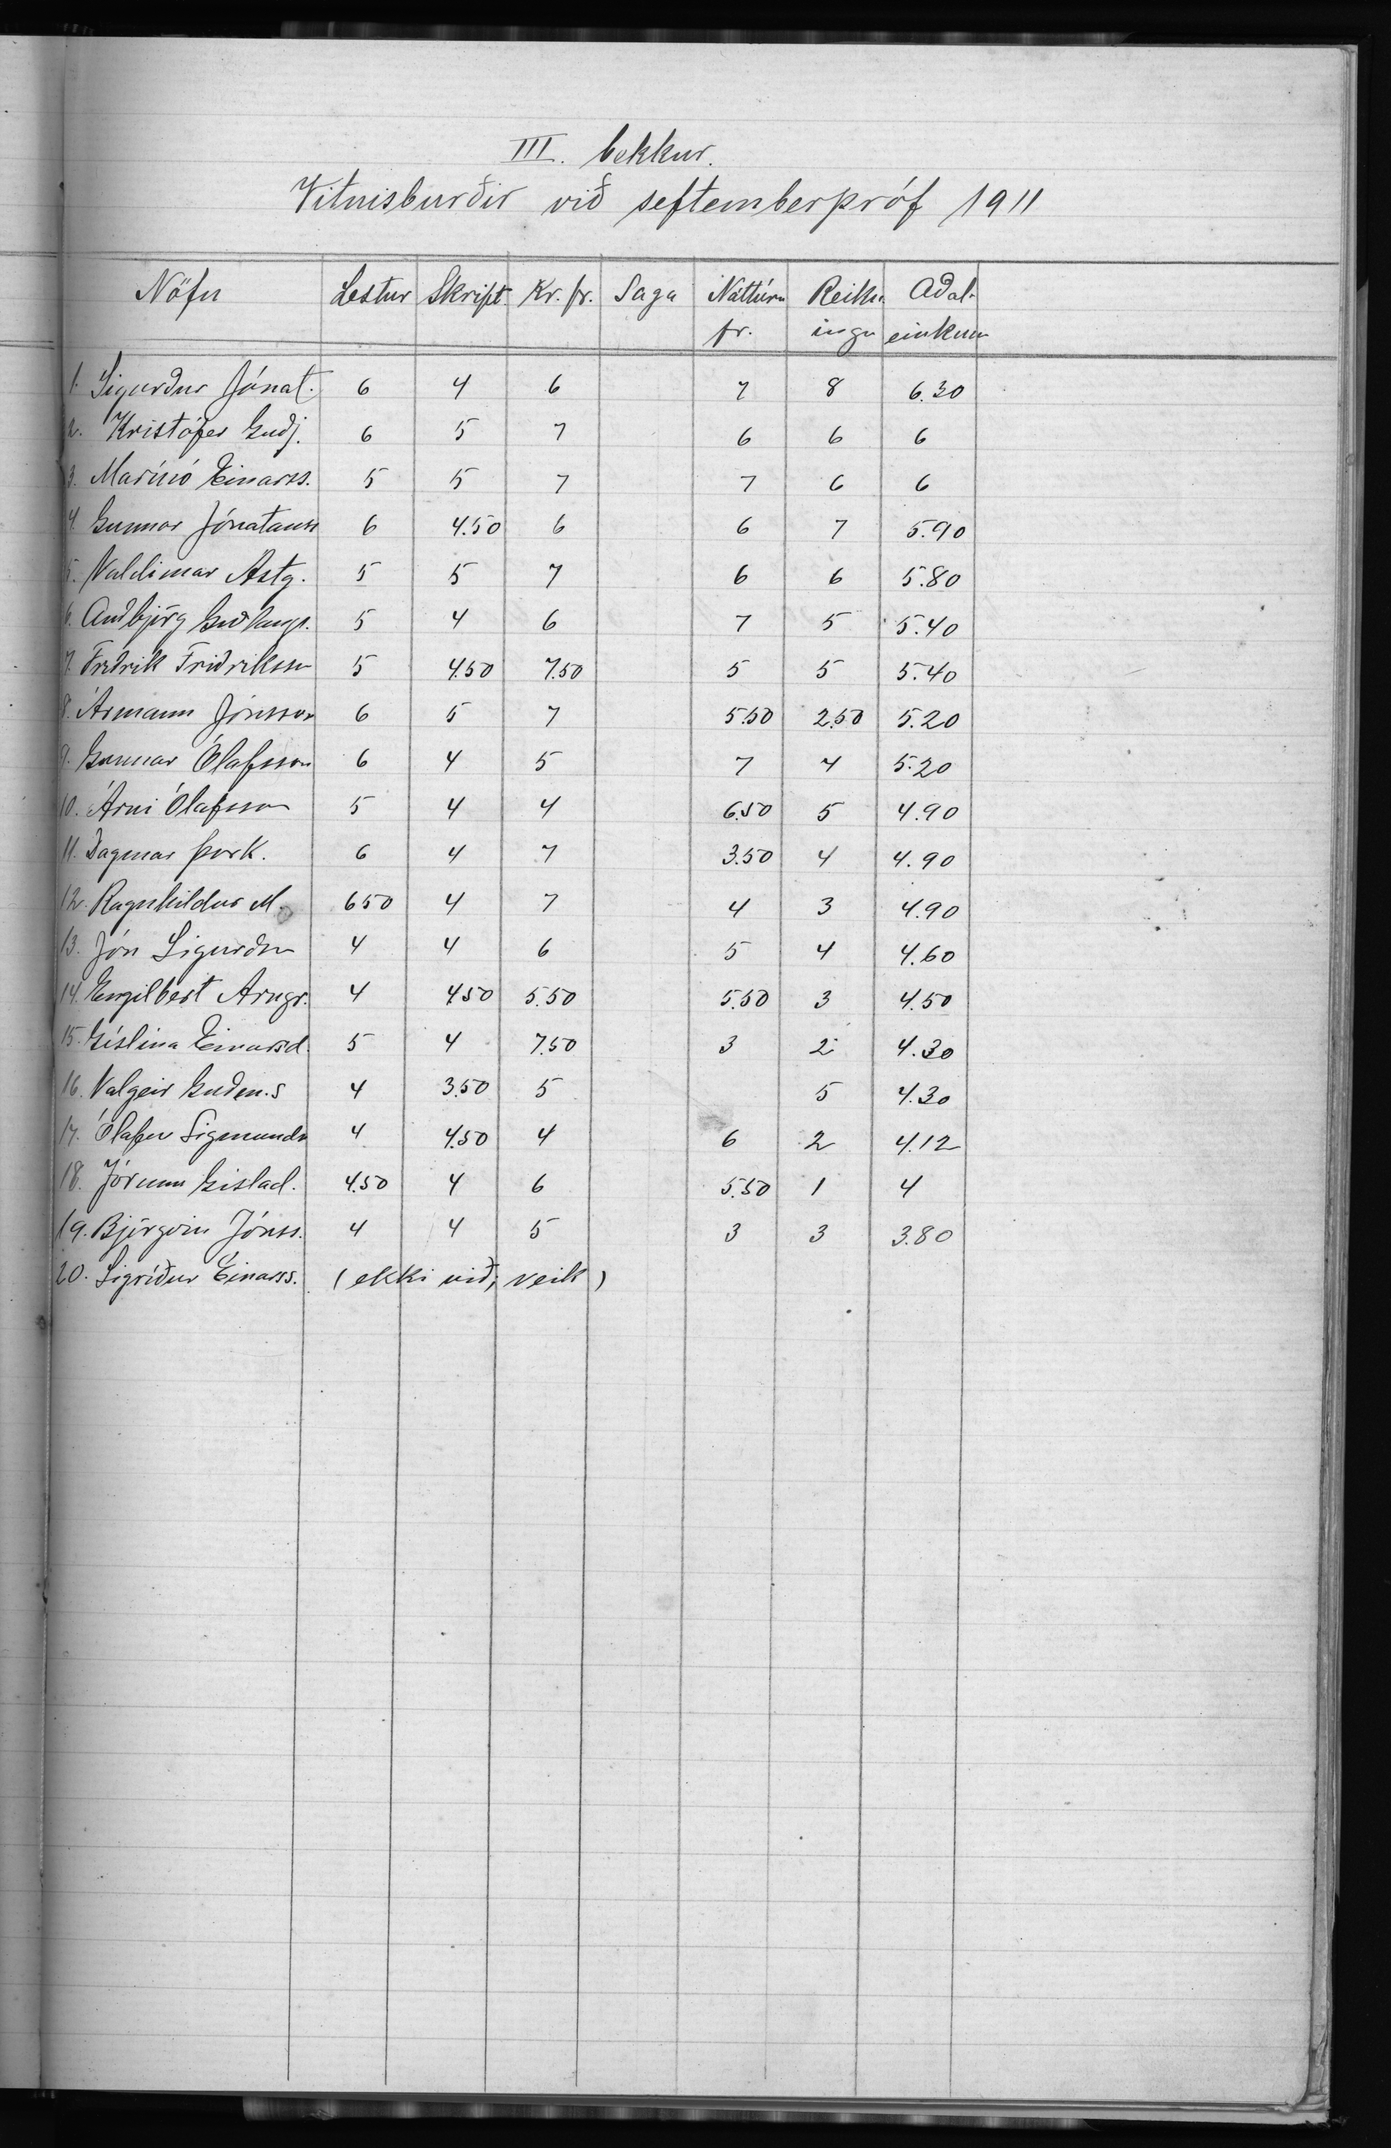 III. bekkur.
Vitnisburðir við septemberpróf 1911
Nöfn Lestur Skrift. Kr. fr. Saga Náttúru fr. Reikn ingr Aðal- einkunn
1. Sigurður Jónat. 6 4 6 7 8 6.30
2. Kristófer Guðj. 6 5 7 6 6 6
3. Marinó Einarss. 5 5 7 7 6 6
4. Gunnar Jónatanss 6 4.50 6 6 7 5.90
5. Valdimar Astg. 5 5 7 6 6 5.80
6. Auðbjörg Guðlaugs. 5 4 6 7 5 5.40
7. Friðrik Friðriksson 5 4.50 7.50 5 5 5.40
8. Ármann Jónsson 6 5 7 5.50 2.50 5.20
9. Gunnar Ólafsson 6 4 5 7 4 5.20
10. Árni Ólafsson 5 4 4 6.50 5 4.90
11. Dagmar Þork. 6 4 7 3.50 4 4.90
12. Ragnhildur M. 650 4 7 4 3 4.90
13. Jón Sigurðsn 4 4 6 5 4 4.60
14. Engilbert Arngr. 4 4.50 5.50 5.50 3 4.50
15. Gíslína Einarsd. 5 4 7.50 3 2 4.30
16. Valgeir Guðm.s 4 3.50 5 5 4.30
17. Ólafur Sigmunds 4 4.50 4 6 2 4.12
18. Jórunn Gíslad. 4.50 4 6 5.50 1 4
19. Björgvin Jónss. 4 4 5 3 3 3.80
20. Sigríður Einarss. (ekki við, veik)